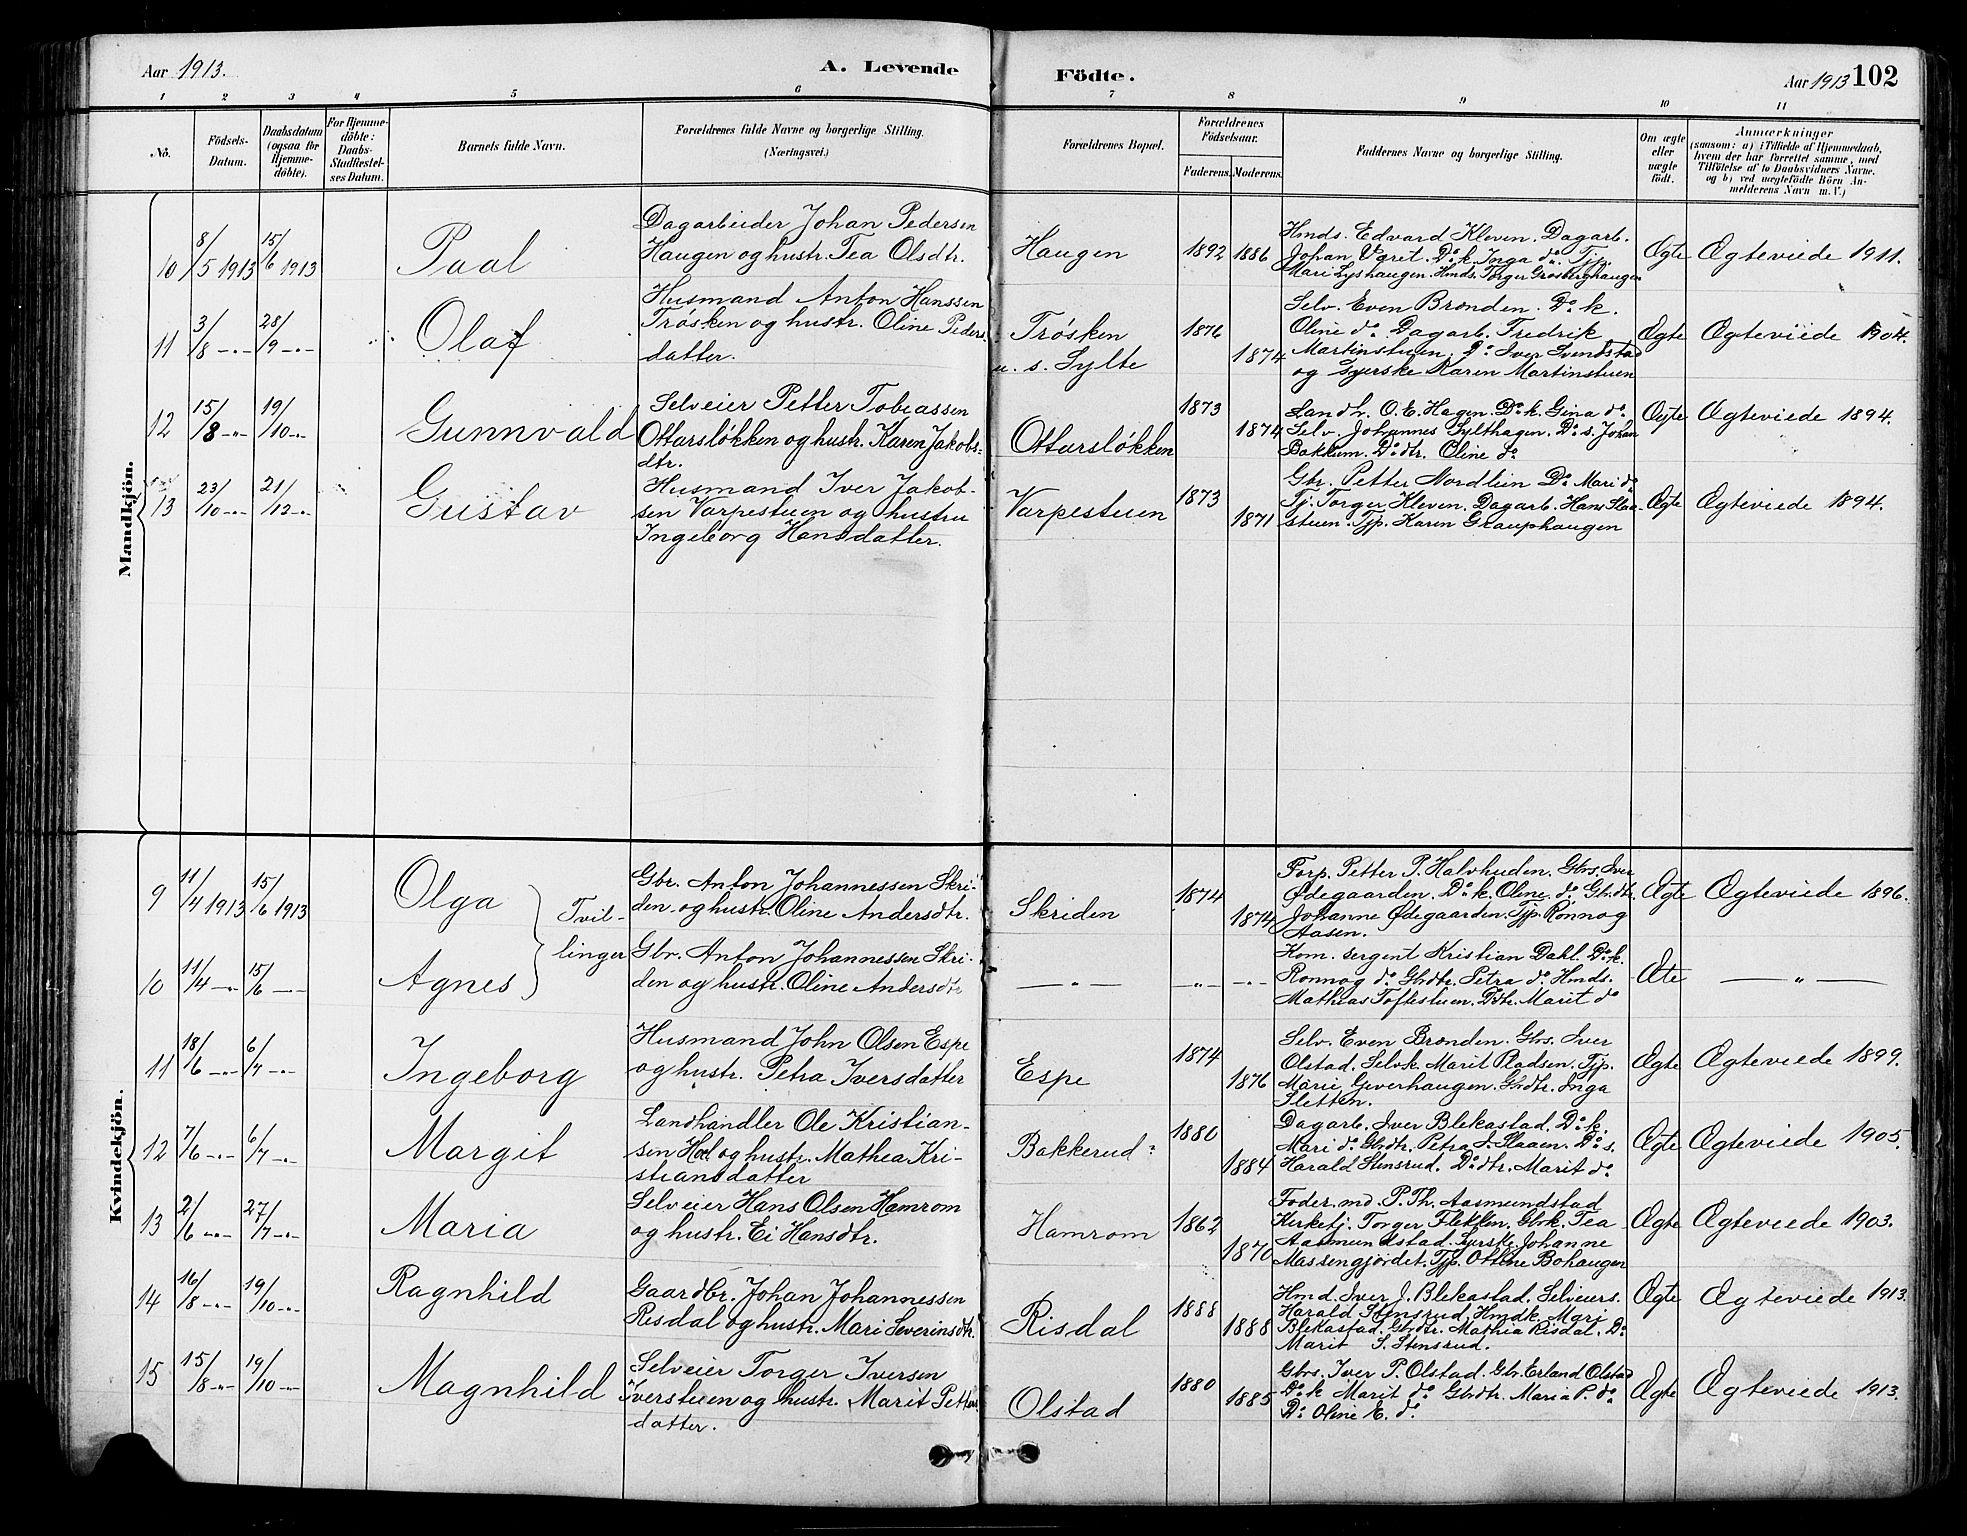 Aar 1913.
A. Levende
Födte.
Aar 1913 102
1 2 3 4 5 6 7 8 9 10 11
No.
Födsels-
Datum.
Daabsdatum
(ogsaa for
Hjemme-
döbte).
For Hjemme-
döbte:
Daabs-
Stadfæstel-
ses Datum.
Barnets fulde Navn.
Forældrenes fulde Navne og borgerlige Stilling.
(Næringsvei.)
Forældrenes Bopæl.
Forældrenes
Födselsaar.
Faderens. Moderens.
Faddernes Navne og borgerlige Stilling.
Om ægte
eller
uægte
födt.
Anmærkninger
(saasom: a) i Tilfælde af Hjemmedaab,
hvem der har forrettet samme, med
Tilföielse af to Daabsvidners Navne,
og b) ved uægtefödte Börn An-
melderens Navn m. V.)
Mandkjön.
10 8/5 1913 15/6 1913
Paal
Dagarbeider Johan Pedersen
Haugen og hustr. Tea Olsdtr.
Haugen
1892 1886
Hmds. Edvard Kleven. Dagarb.
Johan Ugrit. Do k. Inga do. Tjp.
Mari Lyshaugen. Hmds. Torger Grosberghaugen
Ægte
Ægteviede 1911.
11 3/8 -"- 28/9 -"-
Olaf
Husmand Anton Hanssen
Trösken og hustr. Oline Peders
datter.
Trösken
u. s. Sylte
1876
1874
Selv. Even Brenden. Do k.
Oline do. Dagarb. Fredrik
Martinstuen. Do Iver Svendstad
og Syerske Karen Martinstuen
Ægte
Ægteviede 1904.
12 15/8 -"- 19/10 -"-
Gunnvald
Selveier Petter Tobiassen
Ottarslökken og hustr. Karen Jakobs-
dtr.
Ottarslökken
1873
1874
Landh. O. E. Hagen. Do k. Gina do.
Selv. Johannes Sylthagen. Do s. Johan
Bakkum. Do dtr. Oline do
Ægte
Ægteviede 1894.
13 23/10 -"- 21/12 -"-
Gustav
Husmand Iver Jakob-
sen Varpestuen og hustru
Ingeborg Hansdatter.
Varpestuen
1873
1871
Gbr. Petter Nordlien Do Mari do
Tj. Torger Kleven. Dagarb. Hans Slaa-
stuen. Tjp. Karen Grauphaugen
Ægte
Ægteviede 1894.
Kvindekjön.
9 11/4 1913 15/6 1913
Olga
Tvil-
linger
Gbr. Anton Johannessen Skri-
den og hustr. Oline Andersdtr.
Skriden
1874
1874
Forp. Petter P. Halvhuden. Gbrs. Iver
Ödegaarden. Do k. Oline do. Gbrdtr.
Johanne Ödegaarden. Tjp. Ronnog
Aasen.
Ægte
Ægteviede 1896.
10 11/4 -"- 15/6 -"-
Agnes
Gbr. Anton Johannessen Skri-
den og hustr. Oline Andersdtr
-"- -"- -"-
Kom. sergent Kristian Dahl. Do k.
Ronnog do. Gbrdtr. Petra do. Hmds.
Mathias Toftestuen. Do dtr. Marit do
Æte
-"-
11 18/6 -"- 6/7 -"-
Ingeborg
Husmand John Olsen Espe
og hustr. Petra Iversdatter
Espe
1874
1876
Selv. Even Brenden. Gbrs. Iver
Olstad. Selvk. Marit Pladsen. Tjp.
Marie Geverhaugen. Gbrdtr. Inga
Sletten.
Ægte
Ægteviede 1899.
12 7/6 -"- 6/7 -"-
Margit
Landhandler Ole Kristian-
sen Hol og hustr. Mathea Kri-
stiansdatter
Bakkerud
1880
1884
Dagarb. Iver Blekastad. Do k.
Mari do. Gbrdtr. Petra I. Slaaen. Do s.
Harald Stensrud. Do dtr. Marit do
Ægte
Ægteviede 1905.
13 2/6 -"- 27/7 -"-
Maria
Selveier Hans Olsen Hamrom
og hustr. Ei Hansdtr.
Hamrom
1862
1870
Foder. md. P. Th. Aasmundstad
Kirketj. Torger Flekken. Gbrk. Tea
Aasmundstad. Syrske Johanne
Massengjördet. Tjp. Ottine Bohaugen
Ægte
Ægteviede 1903.
14 16/8 -"- 19/10 -"-
Ragnhild
Gaardbr. Johan Johannessen
Risdal og hustr. Mari Severinsdtr.
Risdal
1888
1888
Hmd. Iver J. Blekastad. Selveiers.
Harald Stensrud. Hmdk. Mari
Blekastad. Gbrdtr. Mathia Risdal. Do
Marit S. Stensrud.
Ægte
Ægteviede 1913.
15 15/8 -"- 19/10 -"-
Magnhild
Selveier Torger Iversen
Iverstuen og hustr. Marit Petters
datter.
Olstad
1880
1885
Gbrs. Iver P. Olstad. Gbr. Erland Olstad
Do k Marit do Gbrdtr. Maria P. do
Do Oline E. do
Ægte
Ægteviede 1913.